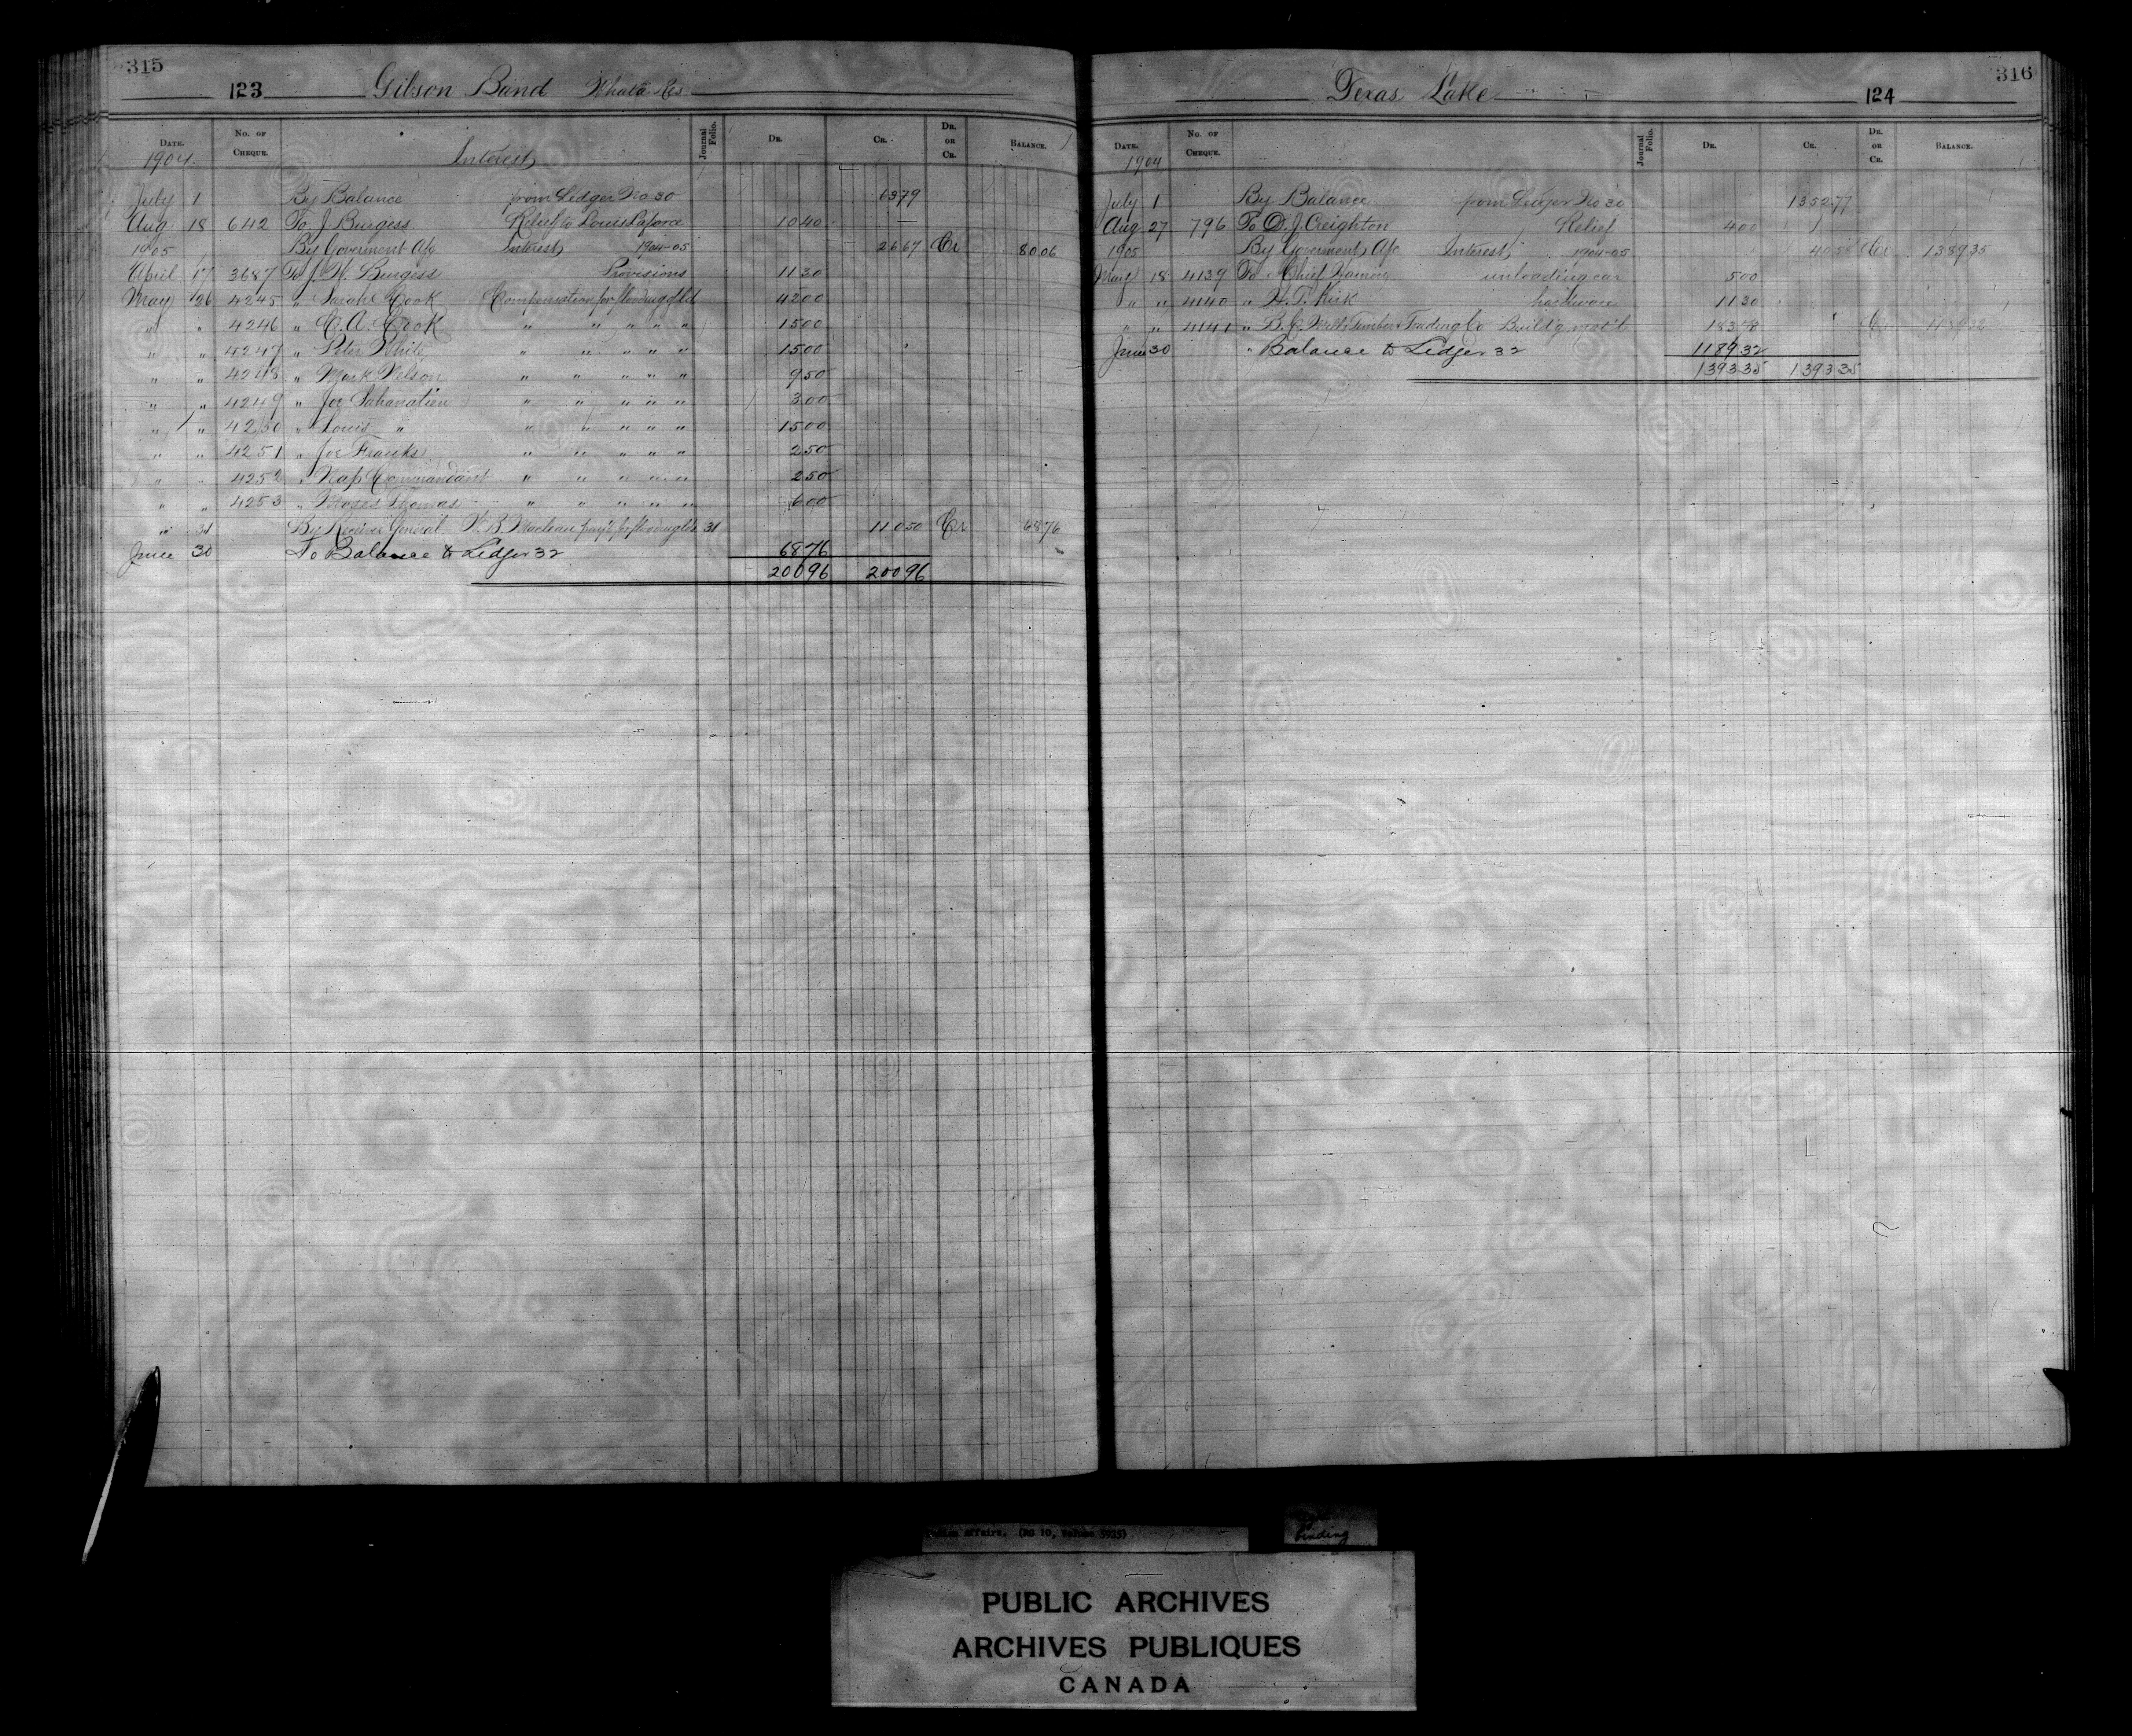 315
123 Gibson Band
DATE. No. OF CHEQUE. Journal Folio. DR. CR. DR. OR CR. BALANCE.
1904 Interest
July 1 By Balance from Ledger No 30 6379
Aug 18 642 To J Burgess Relief to Louis Laforce 1040
1905 By Goverment A/c Interest 1904-05 2667 Cr 8006
April 17 3687 To J. W. Burgess Provisions 1130
May 26 4245 " Sarah Cook Compensation for flooding of ld 4200
" " 4246 " C. A. Cook " " " " " 1500
" " 4247 " Peter White " " " " " 1500
" " 4248 " Mark Nelson " " " " " 950
" " 4249 " Joe Sahanatien " " " " " 300
" " 4250 " Louis " " " " " " 1500
" " 4251 " Joe Franks " " " " " 250
" " 4252 " Nap Commandant " " " " " 250
" " 4253 " Moses Thomas " " " " " 600
" 31 By Receiver General W. B. Maclean pay't for flooding lds 31 11050 Cr 6876
June 30 To Balance to Ledger 32 6876
20096 20096
316
Texas Lake 124
DATE. No. OF CHEQUE. Journal Folio. DR. CR. DR. OR CR. BALANCE.
1904
July 1 By Balance from Ledger No 30 135277
Aug 27 796 To D. J. Creighton Relief 400
1905 By Goverment A/c Interest 1904-05 4058 Cr 138935
May 18 4139 To Chief unloading car 500
" " 4140 " T. Kirk hardware 1130
" " 4141 " B. C. Mills Timber & Trading Co Build'g mat'l 18373 Cr 118932
June 30 " Balance to Ledger 32 118932
139335 139335
Indian Affairs. (RG 10, Volume 5935)
binding
PUBLIC ARCHIVES
ARCHIVES PUBLIQUES
CANADA